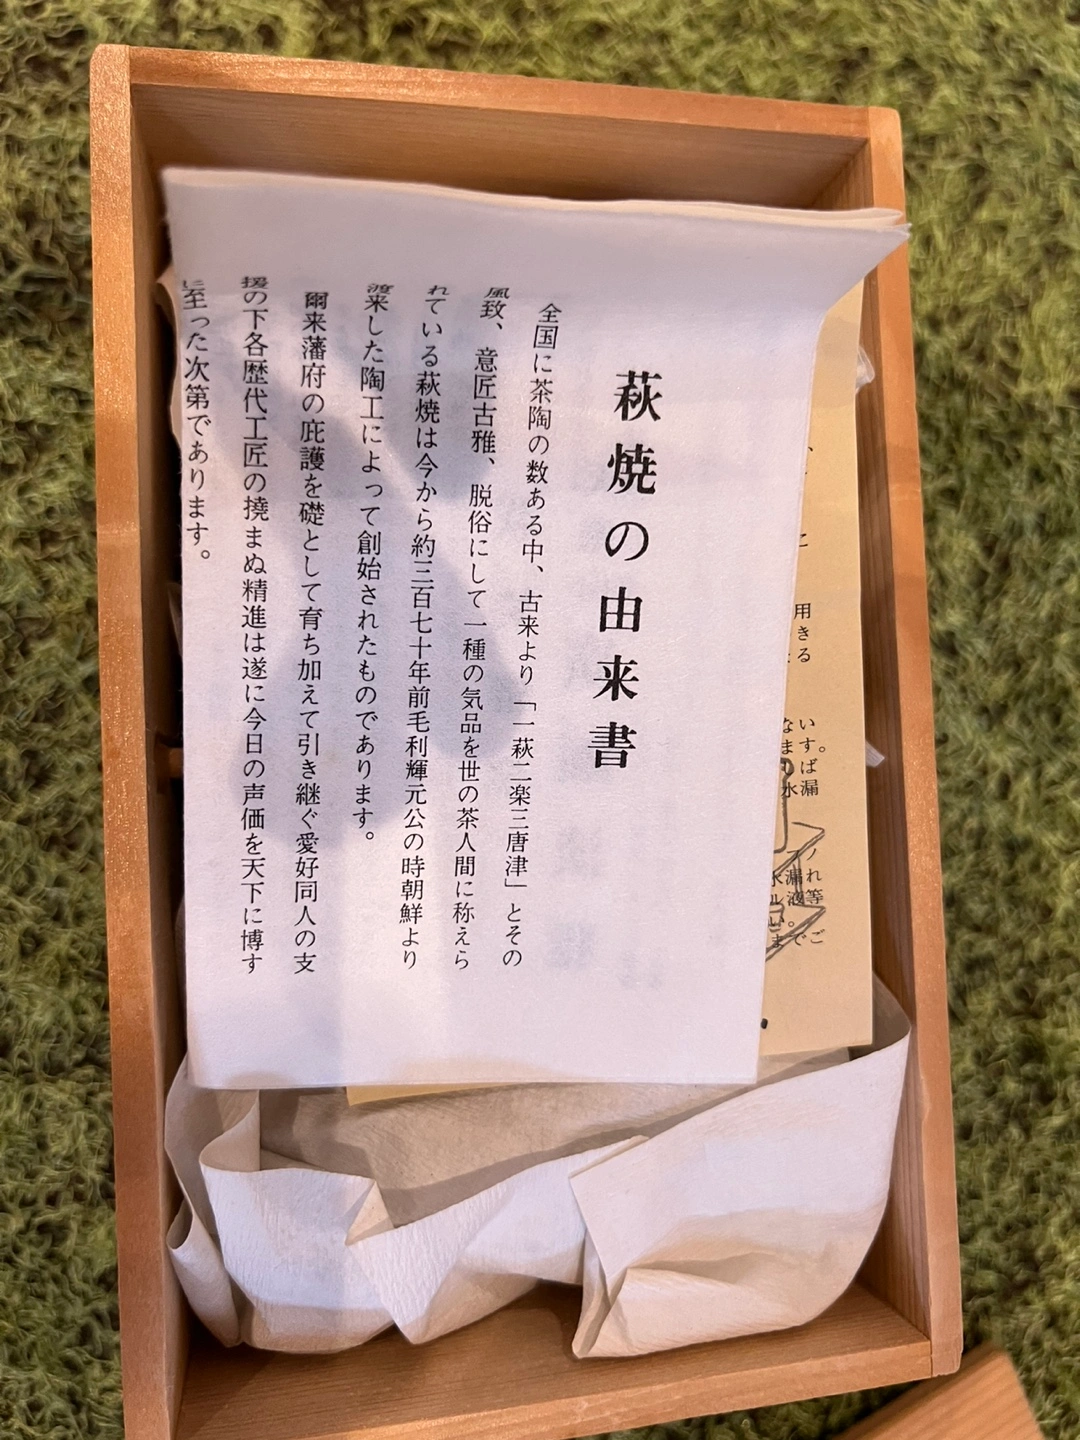 萩焼の由来書
全国に茶陶の数ある中、古来より「一萩二楽三唐津」とその
風致、意匠古雅、脱俗にして一種の気品を世の茶人間に称えら
れている萩焼は今から約三百七十年前毛利輝元公の時朝鮮より
渡来した陶工によって創始されたものであります。
爾来藩府の庇護を礎として育ち加えて引き継ぐ愛好同人の支
援の下各歴代工匠の撓まぬ精進は遂に今日の声価を天下に博す
に至った次第であります。
用
きる
ない
ます。
ば
水漏
水漏れ
ル液等
い。
までご